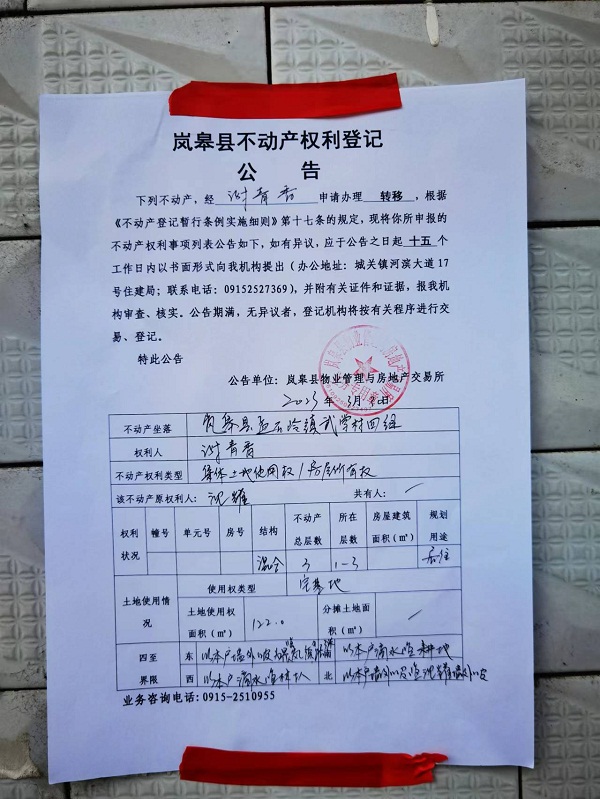 岚皋县不动产权利登记
公 告
下列不动产，经 谢青香 申请办理 转移，根据
《不动产登记暂行条例实施细则》第十七条的规定，现将你所申报的
不动产权利事项列表公告如下，如有异议，应于公告之日起 十五 个
工作日内以书面形式向我机构提出（办公地址：城关镇河滨大道17
号住建局；联系电话：09152527369），并附有关证件和证据，报我机
构审查、核实。公告期满，无异议者，登记机构将按有关程序进行交
易、登记。
特此公告
公告单位：岚皋县物业管理与房地产交易所
2023年3月 日
不动产坐落 岚皋县孟石岭镇武学村四组
权利人 谢青香
不动产权利类型 集体土地使用权/房屋所有权
该不动产原权利人：沈雄 共有人：/
权利状况 幢号 单元号 房号 结构 不动产总层数 所在层数 房屋建筑面积（㎡） 规划用途
混合 3 1-3 居住
土地使用情况 使用权类型 宅基地
土地使用权面积（㎡） 122.0 分摊土地面积（㎡） /
四至界限 东 以本户墙外 南 以本户滴水为界 耕地
西 以本户滴水 北 以本户墙外
业务咨询电话:0915-2510955